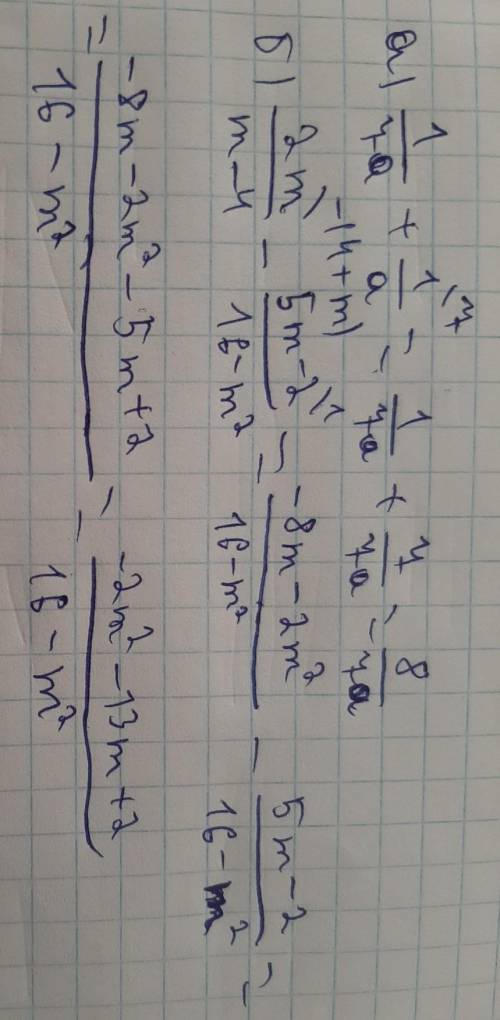 а) 1/7a + 1/a \7 = 1/7a + 7/7a = 8/7a
б) 2m/(m-4) \-(4+m) - (5m-2)/(16-m²) \1 = (-8m-2m²)/(16-m²) - (5m-2)/(16-m²) =
= (-8m-2m²-5m+2)/(16-m²) = (-2m²-13m+2)/(16-m²)